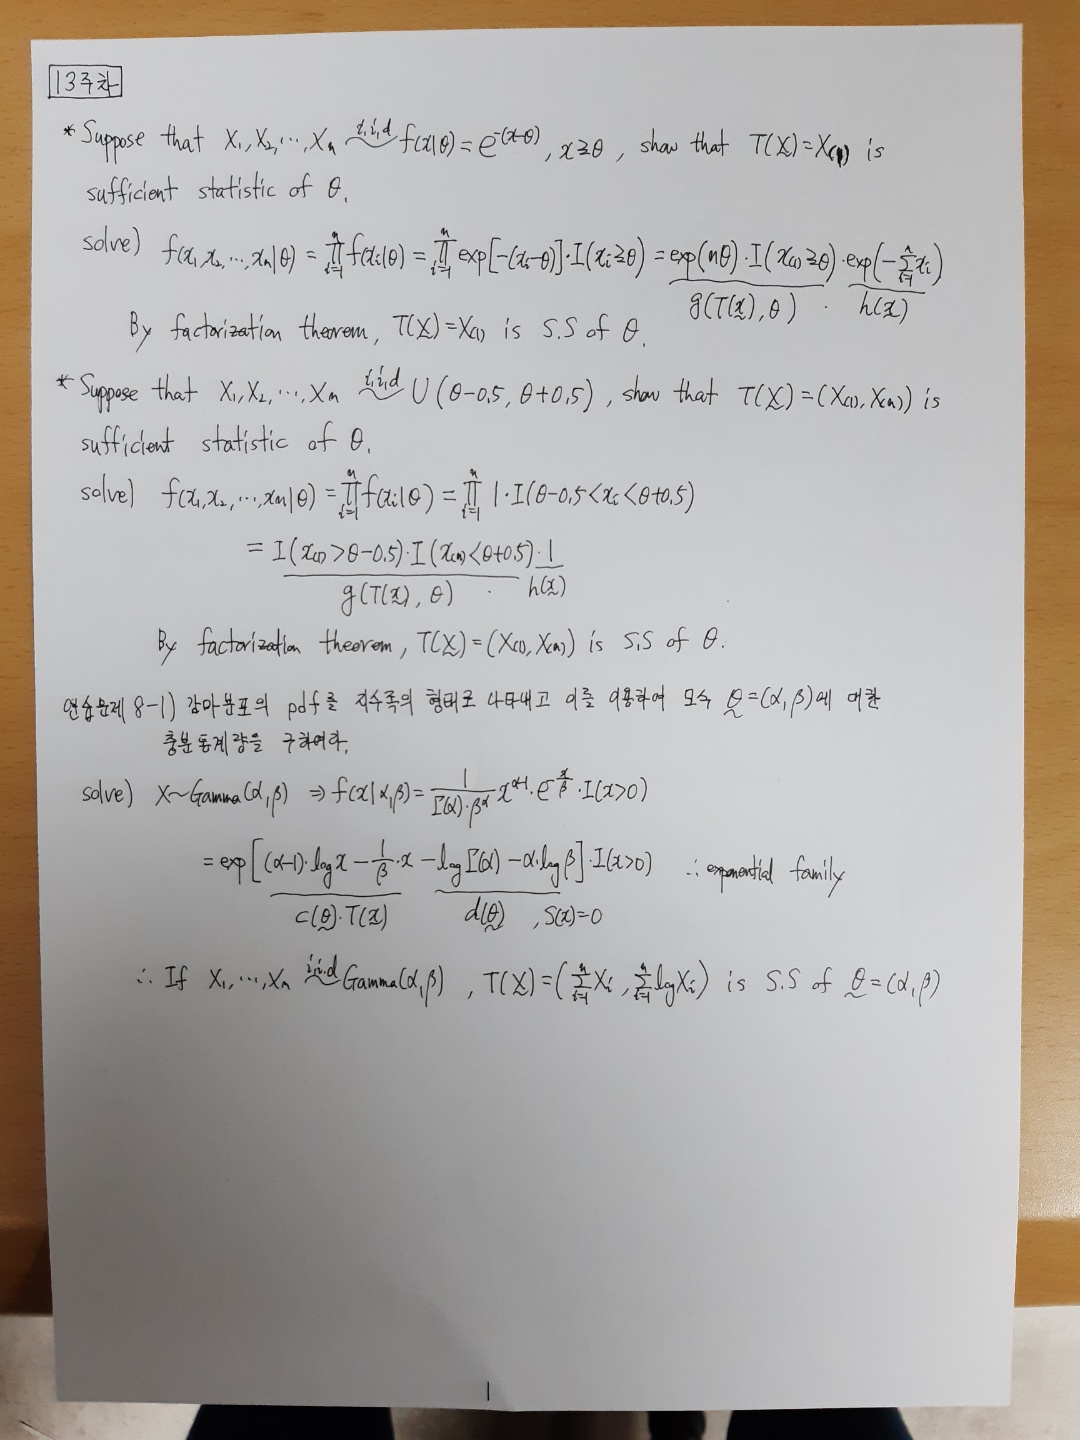 13주차
* Suppose that X₁, X₂, ⋯, Xₙ i.i.d ~ f(x|θ) = e^{-(x-θ)}, x≥θ, show that T(X̰)=X₍₁₎ is
sufficient statistic of θ.
solve) f(x₁, x₂, ⋯, xₙ|θ) = ∏_{i=1}^{n} f(xᵢ|θ) = ∏_{i=1}^{n} exp[-(xᵢ-θ)]·I(xᵢ≥θ) = exp(nθ)·I(x₍₁₎≥θ)·exp(-∑_{i=1}^{n} xᵢ)
g(T(x̰), θ) · h(x̰)
By factorization theorem, T(X̰)=X₍₁₎ is S.S of θ.
* Suppose that X₁, X₂, ⋯, Xₙ i.i.d ~ U(θ-0.5, θ+0.5), show that T(X̰)=(X₍₁₎, X₍ₙ₎) is
sufficient statistic of θ.
solve) f(x₁, x₂, ⋯, xₙ|θ) = ∏_{i=1}^{n} f(xᵢ|θ) = ∏_{i=1}^{n} 1·I(θ-0.5<xᵢ<θ+0.5)
= I(x₍₁₎>θ-0.5)·I(x₍ₙ₎<θ+0.5)·1
g(T(x̰), θ) · h(x̰)
By factorization theorem, T(X̰)=(X₍₁₎, X₍ₙ₎) is S.S of θ.
연습문제 8-1) 감마분포의 pdf를 지수족의 형태로 나타내고 이를 이용하여 모수 θ̰=(α, β)에 대한
충분통계량을 구하여라.
solve) X~Gamma(α, β) ⇒ f(x|α, β) = 1/(Γ(α)·β^α) x^{α-1}·e^{-x/β}·I(x>0)
= exp[(α-1)·log x - 1/β·x - log Γ(α) - α·log β]·I(x>0) ∴ exponential family
c(θ̰)·T(x̰) d(θ̰), S(x)=0
∴ If X₁, ⋯, Xₙ i.i.d ~ Gamma(α, β), T(X̰)=(∑_{i=1}^{n} Xᵢ, ∑_{i=1}^{n} log Xᵢ) is S.S of θ̰=(α, β)
1